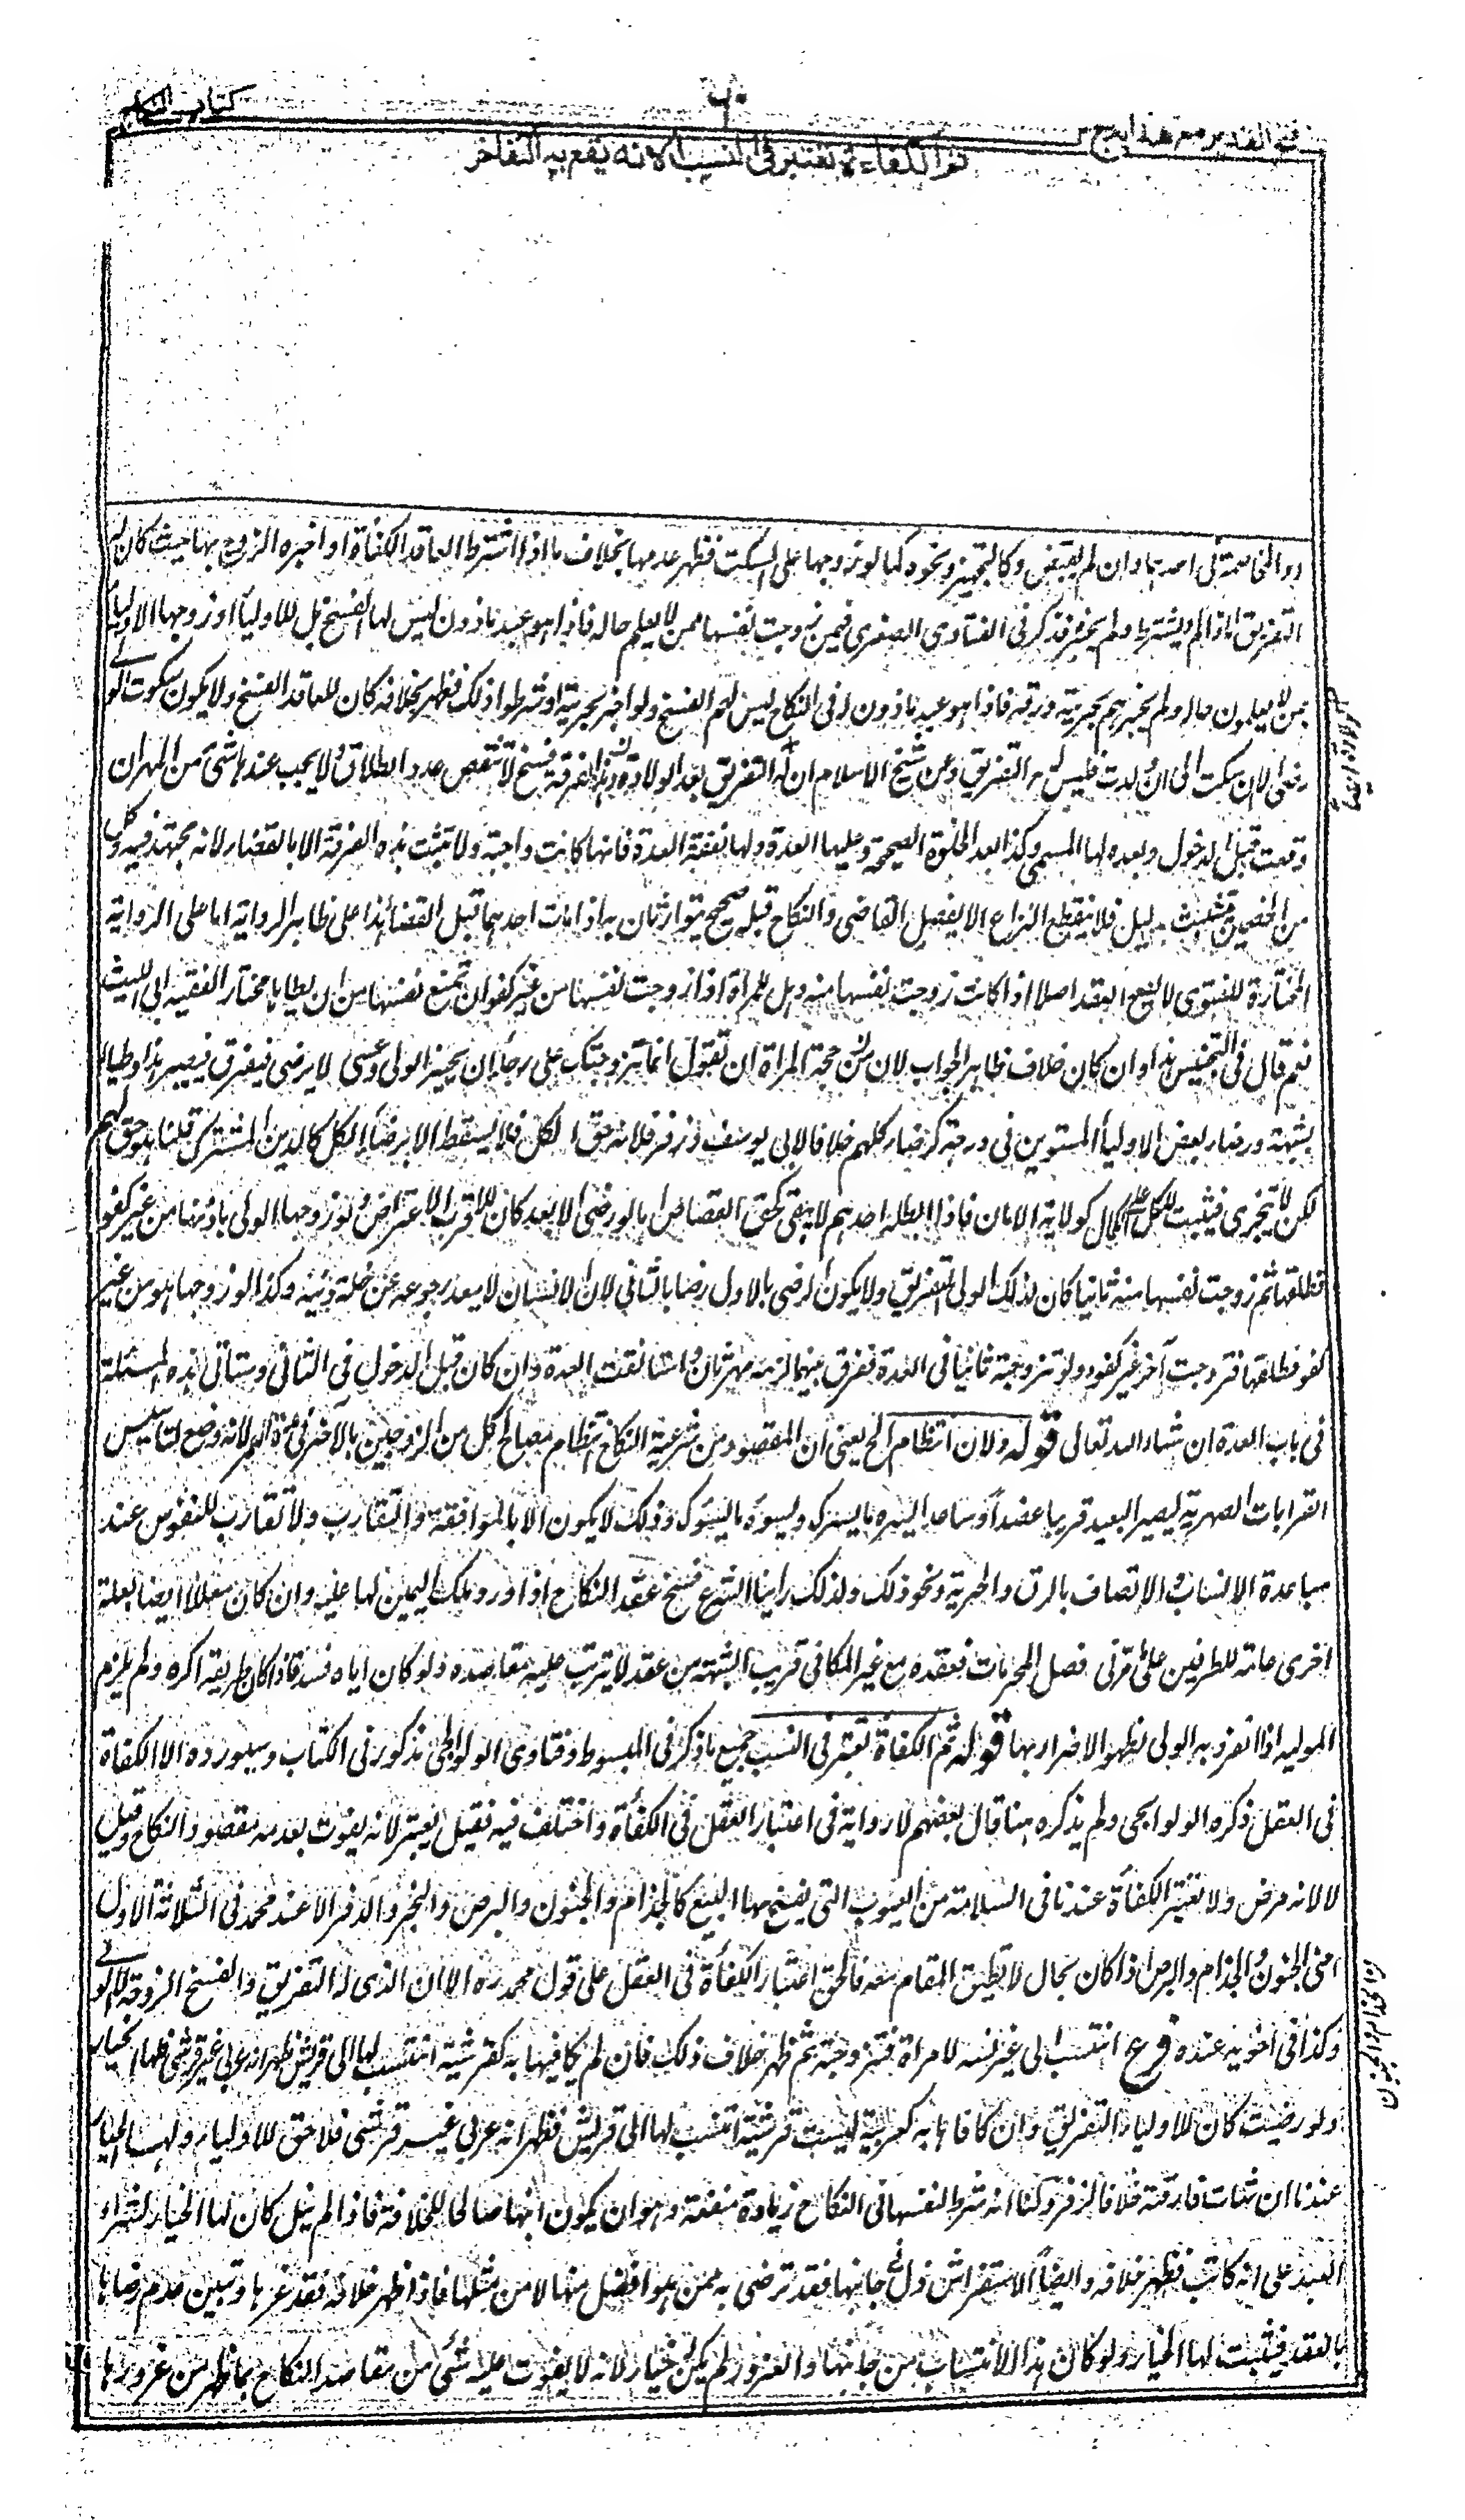 فتح القدير مع هداية ج ٢
٦٠
كتاب النكاح
ثم الكفاءة تعتبر في النسب لانه يقع به التفاخر
والمخاصمة في احدهما وان لم يقبض وكالتجهيز ونحوه كما لو زوجها على السكت فظهر عدمها بخلاف ما اذا اشترط العاقد الكفاءة او اخبره الزوج بها حيث كان له
التفريق اما اذا لم يشترط ولم يخبره فذكر في الفتاوى الصغرى فيمن زوجت نفسها ممن لا يعلم حاله فاذا هو عبد ماذون ليس لها الفسخ بل للاولياء او زوجها الاولياء
ممن لا يعلمون حاله ولم يخبرهم بحريته ورقه فاذا هو عبد ماذون له في النكاح ليس لهم الفسخ ولو اخبر بحريته او شرطوا ذلك فظهر بخلافه كان للعاقد الفسخ ولا يكون سكوت الولي
رضى الا ان سكت الى ان ولدت فليس له التفريق وعن شيخ الاسلام ان له التفريق بعد الولادة وهذه الفرقة فسخ لا تنقص عدد الطلاق ولا يجب عندها شئ من المهر ان
وقعت قبل الدخول وبعده لها المسمى وكذا بعد الخلوة الصحيحة وعليها العدة ولها نفقة العدة فانها كانت واجبة ولا تثبت هذه الفرقة الا بالقضاء لانه مجتهد فيه وكل
من الخصمين يتشبث بدليل فلا ينقطع النزاع الا بفصل القاضي والنكاح قبله صحيح يتوارثان به اذا مات احدهما قبل القضاء هذا على ظاهر الرواية اما على الرواية
المختارة للفتوى لا يصح العقد اصلا اذا كانت زوجت نفسها منه وهل للمراة اذا زوجت نفسها من غير كفو ان تمنع نفسها من ان يطاها مختار الفقيه ابي الليث
نعم قال في التجنيس هذا وان كان خلاف ظاهر الجواب لان من حجة المراة ان تقول انما تزوجتك على رجاء ان يجيز الولي وعسى لا يرضى فيفرق فيصير هذا وطيا
بشبهة ورضاء بعض الاولياء المستوين في درجة كرضاء كلهم خلافا لابي يوسف وزفر فلانه حق الكل فلا يسقط الا برضاء الكل كالدين المشترك قلنا هو حق لهم
لكن لا يتجزى فيثبت للكل على الكمال كولاية الامان فاذا ابطله احدهم لا يبقى كحق القصاص اما لو رضى الابعد كان للاقرب الاعتراض ولو زوجها الولي باذنها من غير كفو
فطلقها ثم زوجت نفسها منه ثانيا كان لذلك الولي التفريق ولا يكون الرضى بالاول رضا بالثاني لان الانسان لا يبعد رجوعه عن خلة دنية وكذا لو زوجها هو من غير
كفو فطلقها فتزوجت آخر غير كفو ولو تزوجته ثانيا في العدة ففرق بينهما لزمه مهر ثان واستانفت العدة وان كان قبل الدخول في الثاني وستاتي هذه المسئلة
في باب العدة ان شاء الله تعالى قوله ولان انتظام الخ يعني ان المقصود من شرعية النكاح انتظام مصالح كل من الزوجين بالآخر في مدة العمر لانه وضع لتاسيس
القرابات الصهرية ليصير البعيد قريبا عضدا وساعدا يسره ما يسرك ويسوءه ما يسوءك وذلك لا يكون الا بالموافقة والتقارب ولا تقارب للنفوس عند
مباعدة الانساب والاتصاف بالرق والحرية ونحو ذلك ولذلك راينا الشرع فسخ عقد النكاح اذا ورد ملك اليمين لها عليه وان كان معللا ايضا بعلة
اخرى عامة للطرفين على ما مر في فصل المحرمات فعقده مع غير المكافي قريب الشبه من عقد لا يترتب عليه مقاصده ولو كان اياه فسد فاذا كان طريقه اكره ولم يلزم
المولية اذا انفرد به الولي لظهور الاضرار بها قوله ثم الكفاءة تعتبر في النسب جميع ما ذكر في المبسوط وفتاوى الولوالجي مذكور في الكتاب وسيورده الا الكفاءة
في العقل ذكره الولوالجي ولم يذكره هنا قال بعضهم لا رواية في اعتبار العقل في الكفاءة واختلف فيه فقيل يعتبر لانه يفوت بعدمه مقصود النكاح وقيل
لا لانه مرض ولا تعتبر الكفاءة عندنا في السلامة من العيوب التي يفسخ بها البيع كالجذام والجنون والبرص والبخر والدفر الا عند محمد في الثلاثة الاول
اعني الجنون والجذام والبرص اذا كان بحال لا تطيق المقام معه فالحق اعتبار الكفاءة في العقل على قول محمد ره الا ان الذي له التفريق والفسخ الزوجة لا الولي
وكذا في اخويه عنده فرع انتسب الى غير نسبه لامراة فتزوجته ثم ظهر خلاف ذلك فان لم يكافيها به كقرشية انتسب لها الى قريش ثم ظهر انه عربي غير قرشي فلها الخيار
ولو رضيت كان للاولياء التفريق وان كافاها به كعربية ليست قرشية انتسب لها الى قريش فظهر انه عربي غير قرشي فلا حق للاولياء ولها الخيار
عندنا ان شاءت فارقته خلافا لزفر ولنا انه شرط لنفسها في النكاح زيادة منفعة وهو ان يكون ابنها صالحا للخلافة فاذا لم تنل كان لها الخيار كشراء
العبد على انه كاتب فظهر خلافه وايضا الاستفراش ذل في جانبها فقد ترضى به ممن هو افضل منها لا من مثلها فاذا ظهر خلافه فقد غرها وتبين عدم رضاها
بالعقد فيثبت لها الخيار ولو كان هذا الانتساب من جانبها والغرور لم يكن له خيار لانه لا يفوت عليه شئ من مقاصد النكاح بما ظهر من غرورها